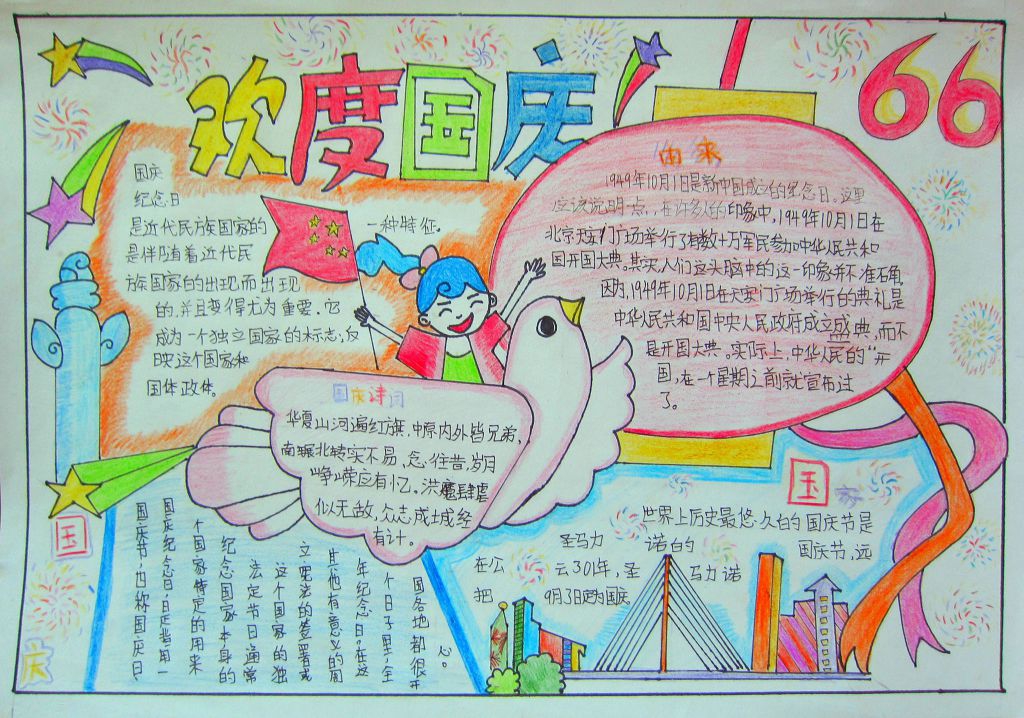 欢度国庆
66
国庆
纪念日
是近代民族国家的
一种特征,
是伴随着近代民
族国家的出现而出现
的,并且变得尤为重要。它
成为一个独立国家的标志,反
映这个国家和
国体政体。
由来
1949年10月1日是新中国成立的纪念日。这里
应该说明点,在许多人的印象中,1949年10月1日在
北京天安门广场举行了有数十万军民参加中华人民共和
国开国大典。其实,人们这头脑中的这一印象并不准确
因为,1949年10月1日在天安门广场举行的典礼是
中华人民共和国中央人民政府成立盛典,而不
是开国大典。实际上,中华人民的“开
国,在一个星期之前就宣布过
了。
国庆诗词
华夏山河遍红旗,中原内外皆兄弟,
南辗北转实不易,念往昔,岁月
峥嵘应有忆。洪魔肆虐
似无敌,众志成城终
有计。
国
庆
世界上历史最悠久的国庆节是
圣马力
诺的
国庆节,远
在公
元301年,圣
马力诺
把
9月3日定为国庆
国
庆
国庆节,也称国庆日
国庆纪念日,日是指用一
个国家特定的用来
纪念国家本身的
法定节日通常
这个国家的独
立宪法的签署或
其他有意义的周
年纪念日。在这
个日子里,全
国各地都很开
心。